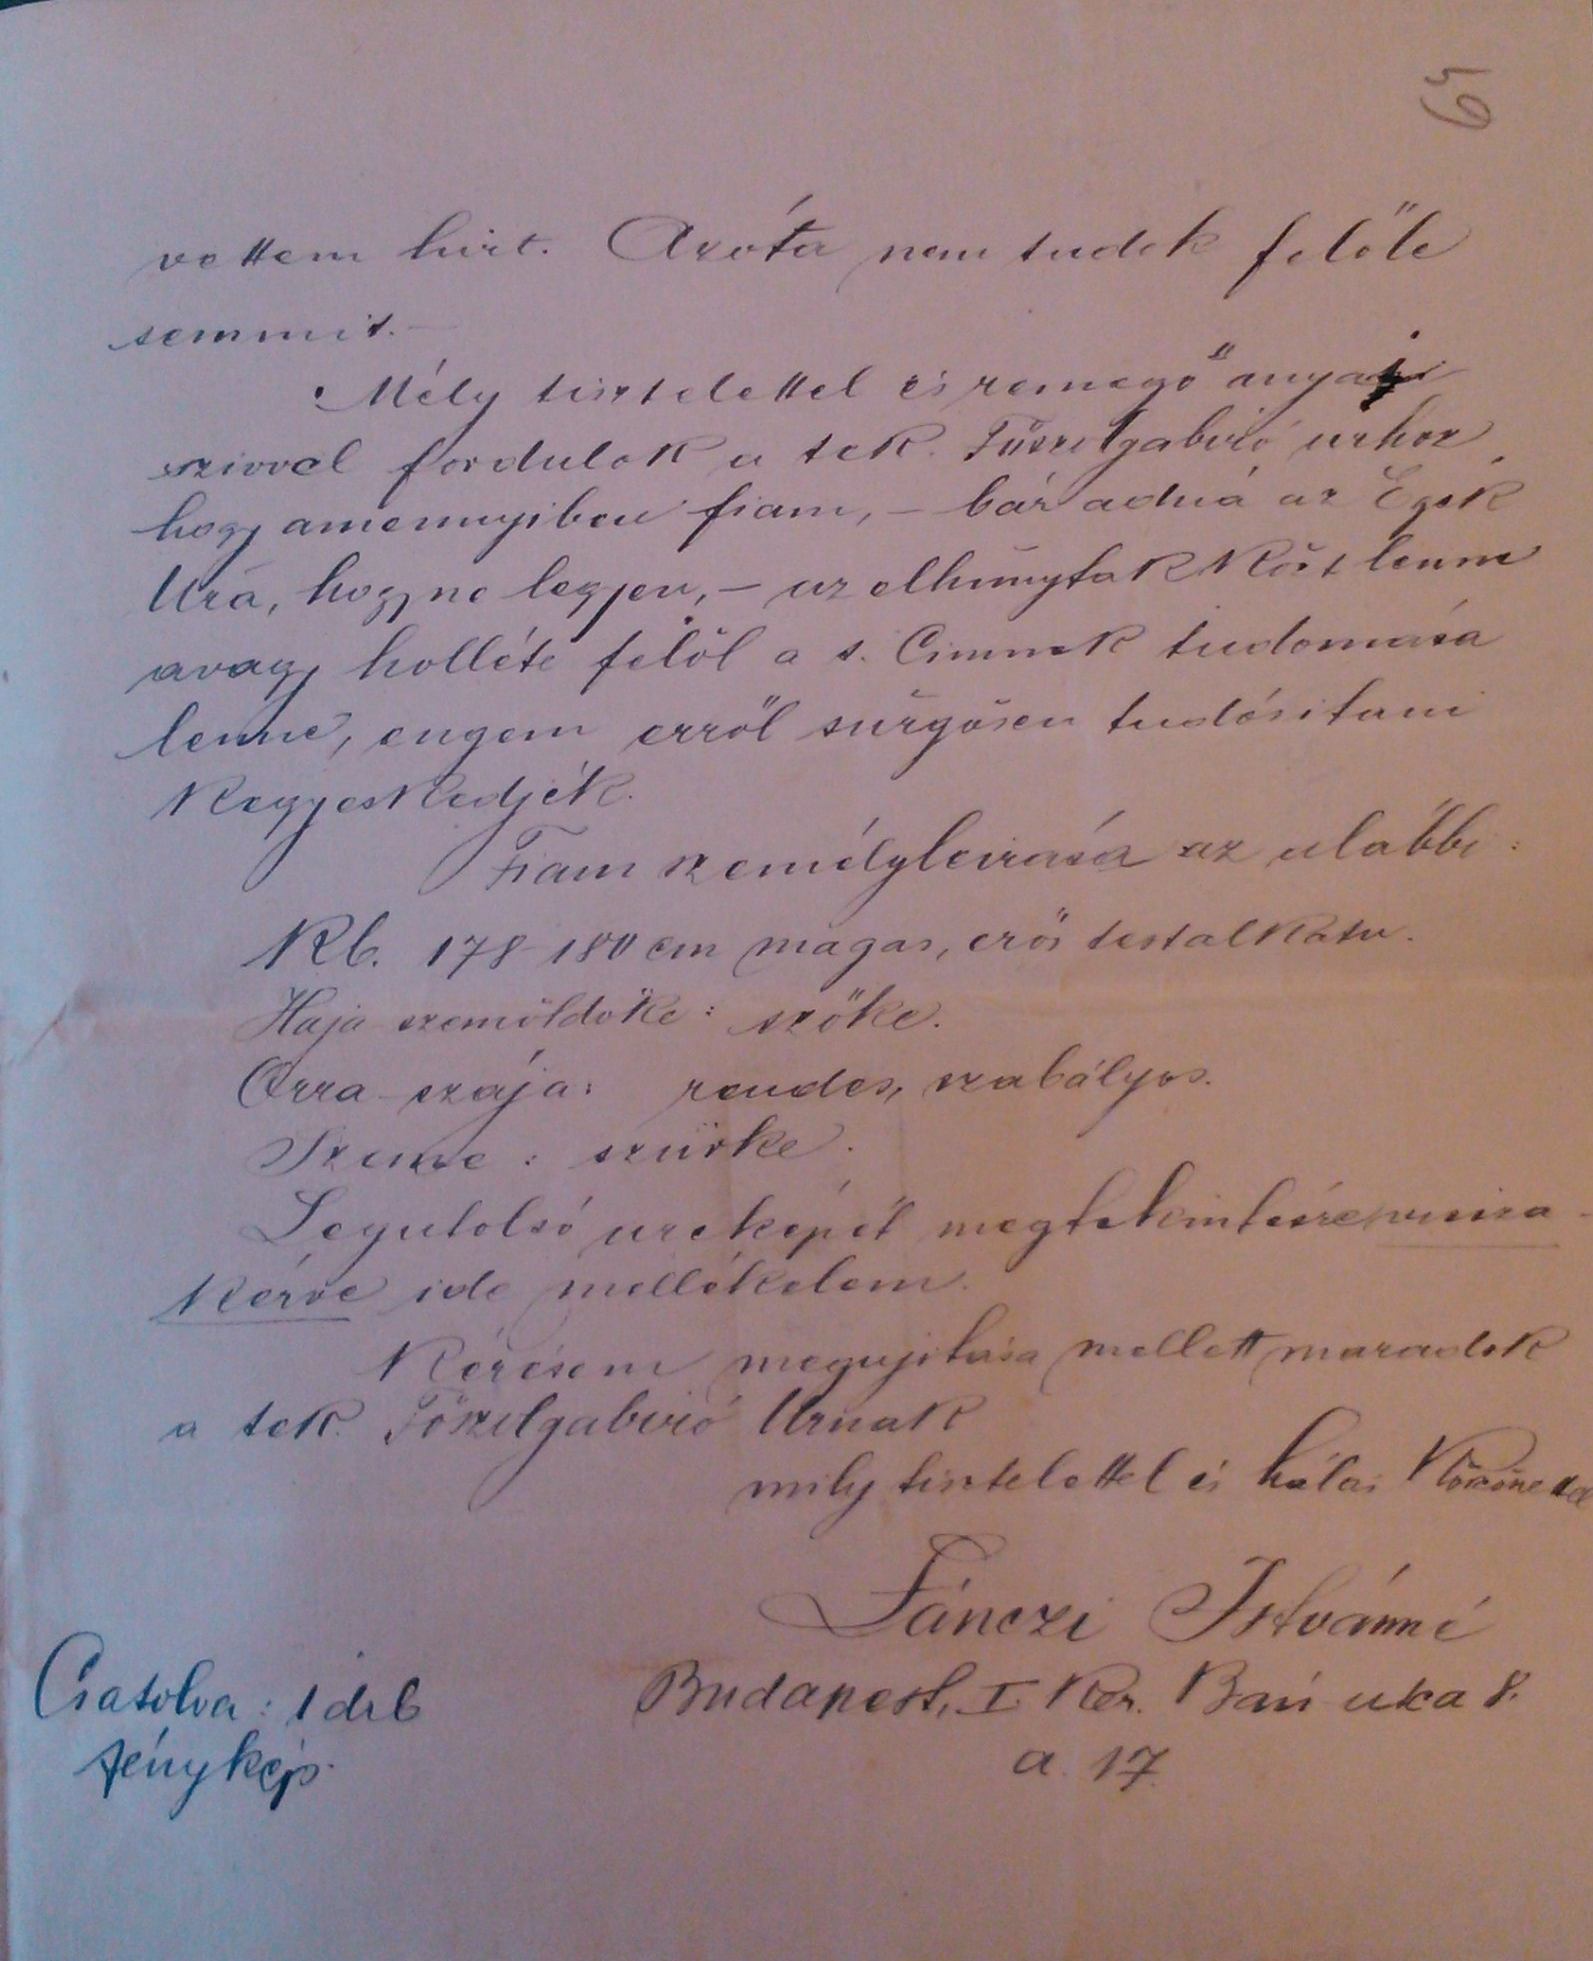 59
vettem hirt. Azóta nem tudok felőle
semmit. —
Mély tisztelettel és remegő anyai
szivvel fordulok a tek. Főszolgabiró urhoz,
hogy amennyiben fiam, – bár adná az Egek
Ura, hogy ne legyen, – az elhúnytak közt lenne
avagy holléte felől a t. Cimnek tudomása
lenne, engem erről sürgősen tudósitani
kegyeskedjék.
Fiam személyleirása az alábbi:
Kb. 178-180 cm magas, erős testalkatu.
Haja szemöldöke: szőke.
Orra-szája: rendes, szabályos.
Szeme: szürke.
Legutolsó arcképét megtekintésre vissza-
kérve ide mellékelem.
Kérésem megujitása mellett maradok
a tek. Főszolgabiró Urnak
mély tisztelettel és hálás köszönettel
Istvánné
Budapest, I. Ker. utca 8.
a. 17.
Csatolva: 1 drb
fénykép.